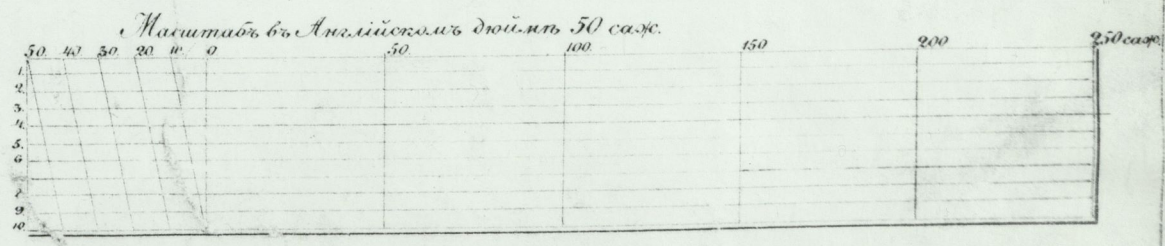 Масштабъ въ Англійскомъ дюймѣ 50 саж.
50. 40. 30. 20. 10. 0 50. 100. 150 200 250 саж.
1.
2.
3.
4.
5.
6.
8.
9.
10.